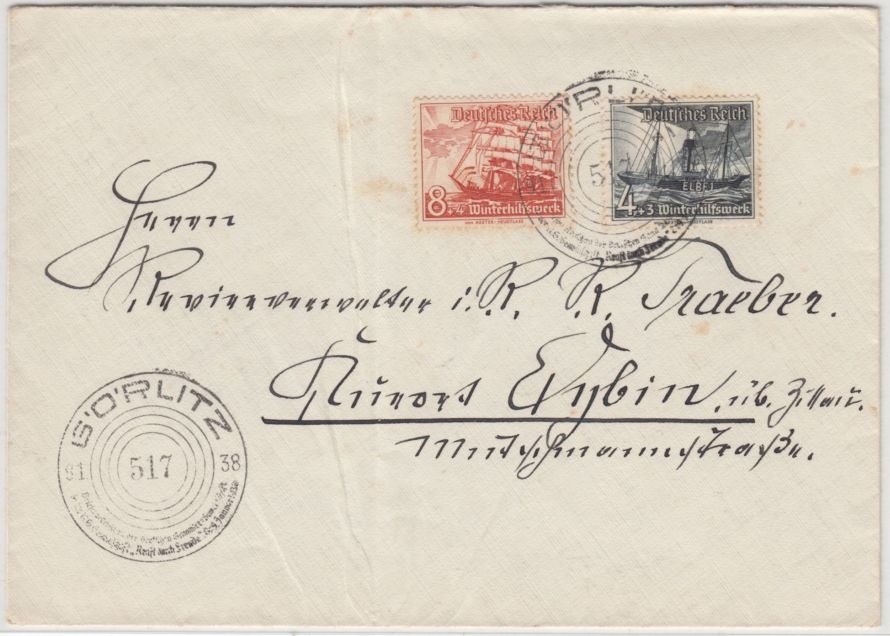 Deutsches Reich
8+4 Winterhilfswerk
Deutsches Reich
ELBE 1
4+3 Winterhilfswerk
GÖRLITZ
517
Herrn
Revierverwalter i. R. R. Traeber.
Kurort Oybin, üb. Zittau.
Mutschmannstraße.
GÖRLITZ
517
38
"Kraft durch Freude"